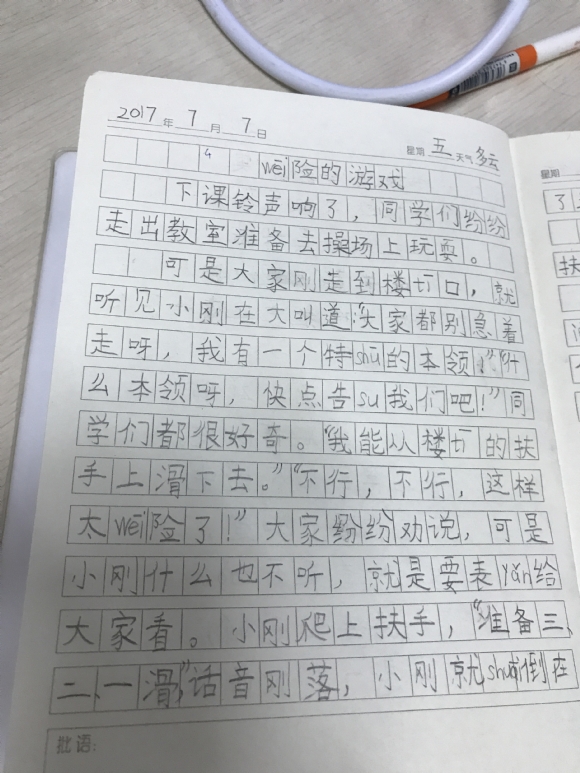 2017年7月7日 星期五 天气多云
wēi险的游戏
下课铃声响了，同学们纷纷
走出教室准备去操场上玩耍。
可是大家刚走到楼tī口，就
听见小刚在大叫道：“大家都别急着
走呀，我有一个特shū的本领。”“什
么本领呀，快点告sù我们吧！”同
学们都很好奇。“我能从楼tī的扶
手上滑下去。”“不行，不行，这样
太wēi险了！”大家纷纷劝说，可是
小刚什么也不听，就是要表yǎn给
大家看。小刚爬上扶手，“准备三、
二、一滑”话音刚落，小刚就shuāi倒在
批语：
星期
了
扶